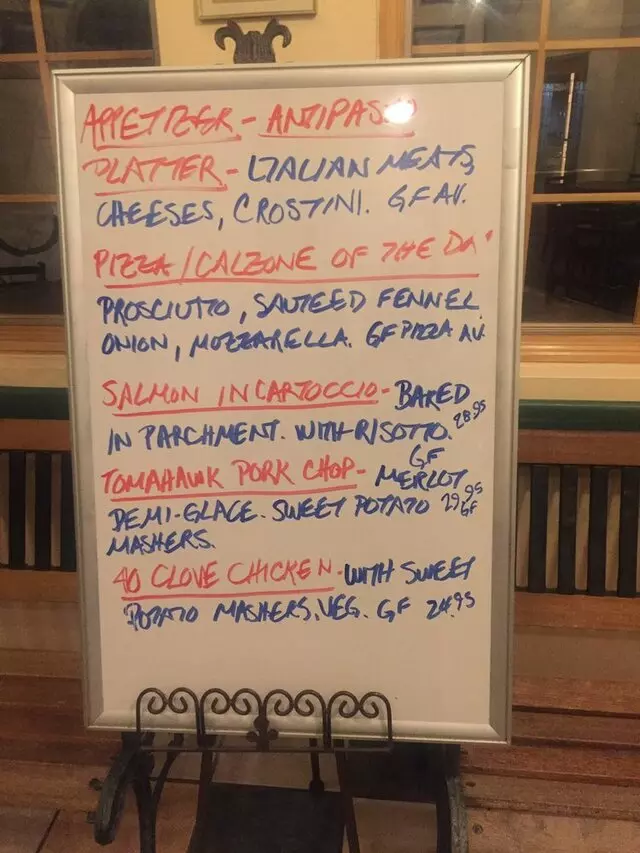 APPETIZER - ANTIPASTO
PLATTER - ITALIAN MEATS,
CHEESES, CROSTINI. GF AV.
PIZZA/CALZONE OF THE DAY
PROSCIUTTO, SAUTEED FENNEL
ONION, MOZZARELLA. GF PIZZA AV.
SALMON IN CARTOCCIO - BAKED
IN PARCHMENT. WITH RISOTTO. 28.95
GF
TOMAHAWK PORK CHOP - MERLOT
DEMI-GLACE. SWEET POTATO 29.95
GF
MASHERS.
40 CLOVE CHICKEN - WITH SWEET
POTATO MASHERS, VEG. GF 24.95